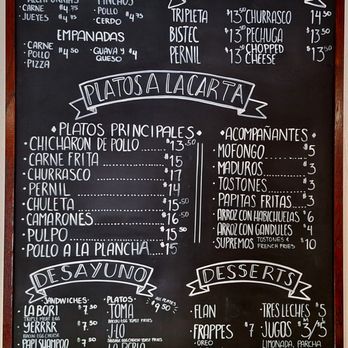 PINCHOS
CARNE
JUEYES $4.75
POLLO $4
CERDO
EMPANADAS
CARNE
POLLO
PIZZA
GUAVA Y $4
QUESO
TRIPLETA $13.50
BISTEC $13.50
PERNIL $13
CHURRASCO 14.50
PECHUGA $13.50
CHOPPED $13.50
CHEESE
PLATOS A LA CARTA
PLATOS PRINCIPALES
CHICHARON DE POLLO $13.50
CARNE FRITA $15
CHURRASCO $17
PERNIL $14
CHULETA $15
CAMARONES $16
PULPO $15
POLLO A LA PLANCHA 15
ACOMPAÑANTES
MOFONGO $5
MADUROS $3
TOSTONES $3
PAPITAS FRITAS $3
ARROZ CON HABICHUELAS $6
ARROZ CON GANDULES $4
SUPREMOS TOSTONES & FRENCH FRIES $10
DESAYUNO
SANDWICHES
LA BORI $7.50
YERRRR $7.50
PAPI SHAMPOO $7.50
PLATOS
ALL PLATES $9.50
TOMA
TITO
LA PERLA
DESSERTS
FLAN
FRAPPES $7
OREO
TRES LECHES $5
JUGOS $3/5
LIMONADA, PARCHA